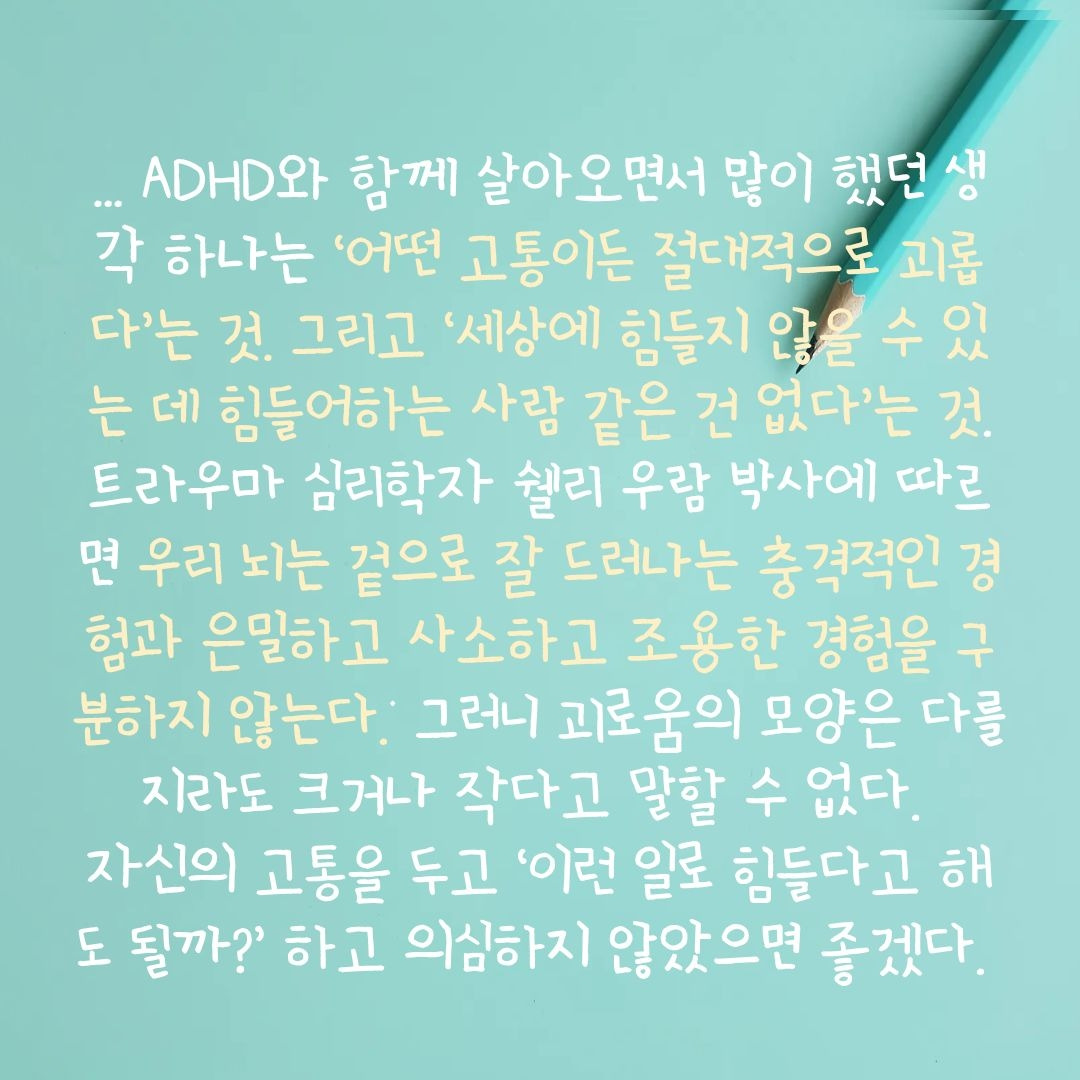 ... ADHD와 함께 살아오면서 많이 했던 생
각 하나는 ‘어떤 고통이든 절대적으로 괴롭
다’는 것. 그리고 ‘세상에 힘들지 않을 수 있
는 데 힘들어하는 사람 같은 건 없다’는 것.
트라우마 심리학자 쉘리 우람 박사에 따르
면 우리 뇌는 겉으로 잘 드러나는 충격적인 경
험과 은밀하고 사소하고 조용한 경험을 구
분하지 않는다. 그러니 괴로움의 모양은 다를
지라도 크거나 작다고 말할 수 없다.
자신의 고통을 두고 ‘이런 일로 힘들다고 해
도 될까?’ 하고 의심하지 않았으면 좋겠다.